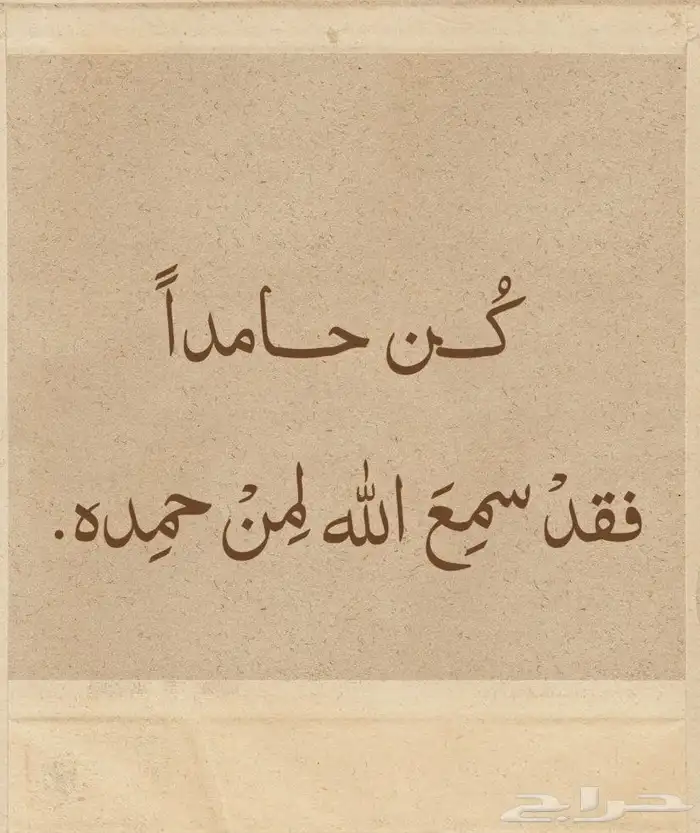 كُن حامداً
فقدْ سمِعَ الله لِمنْ حمِده.
حراج